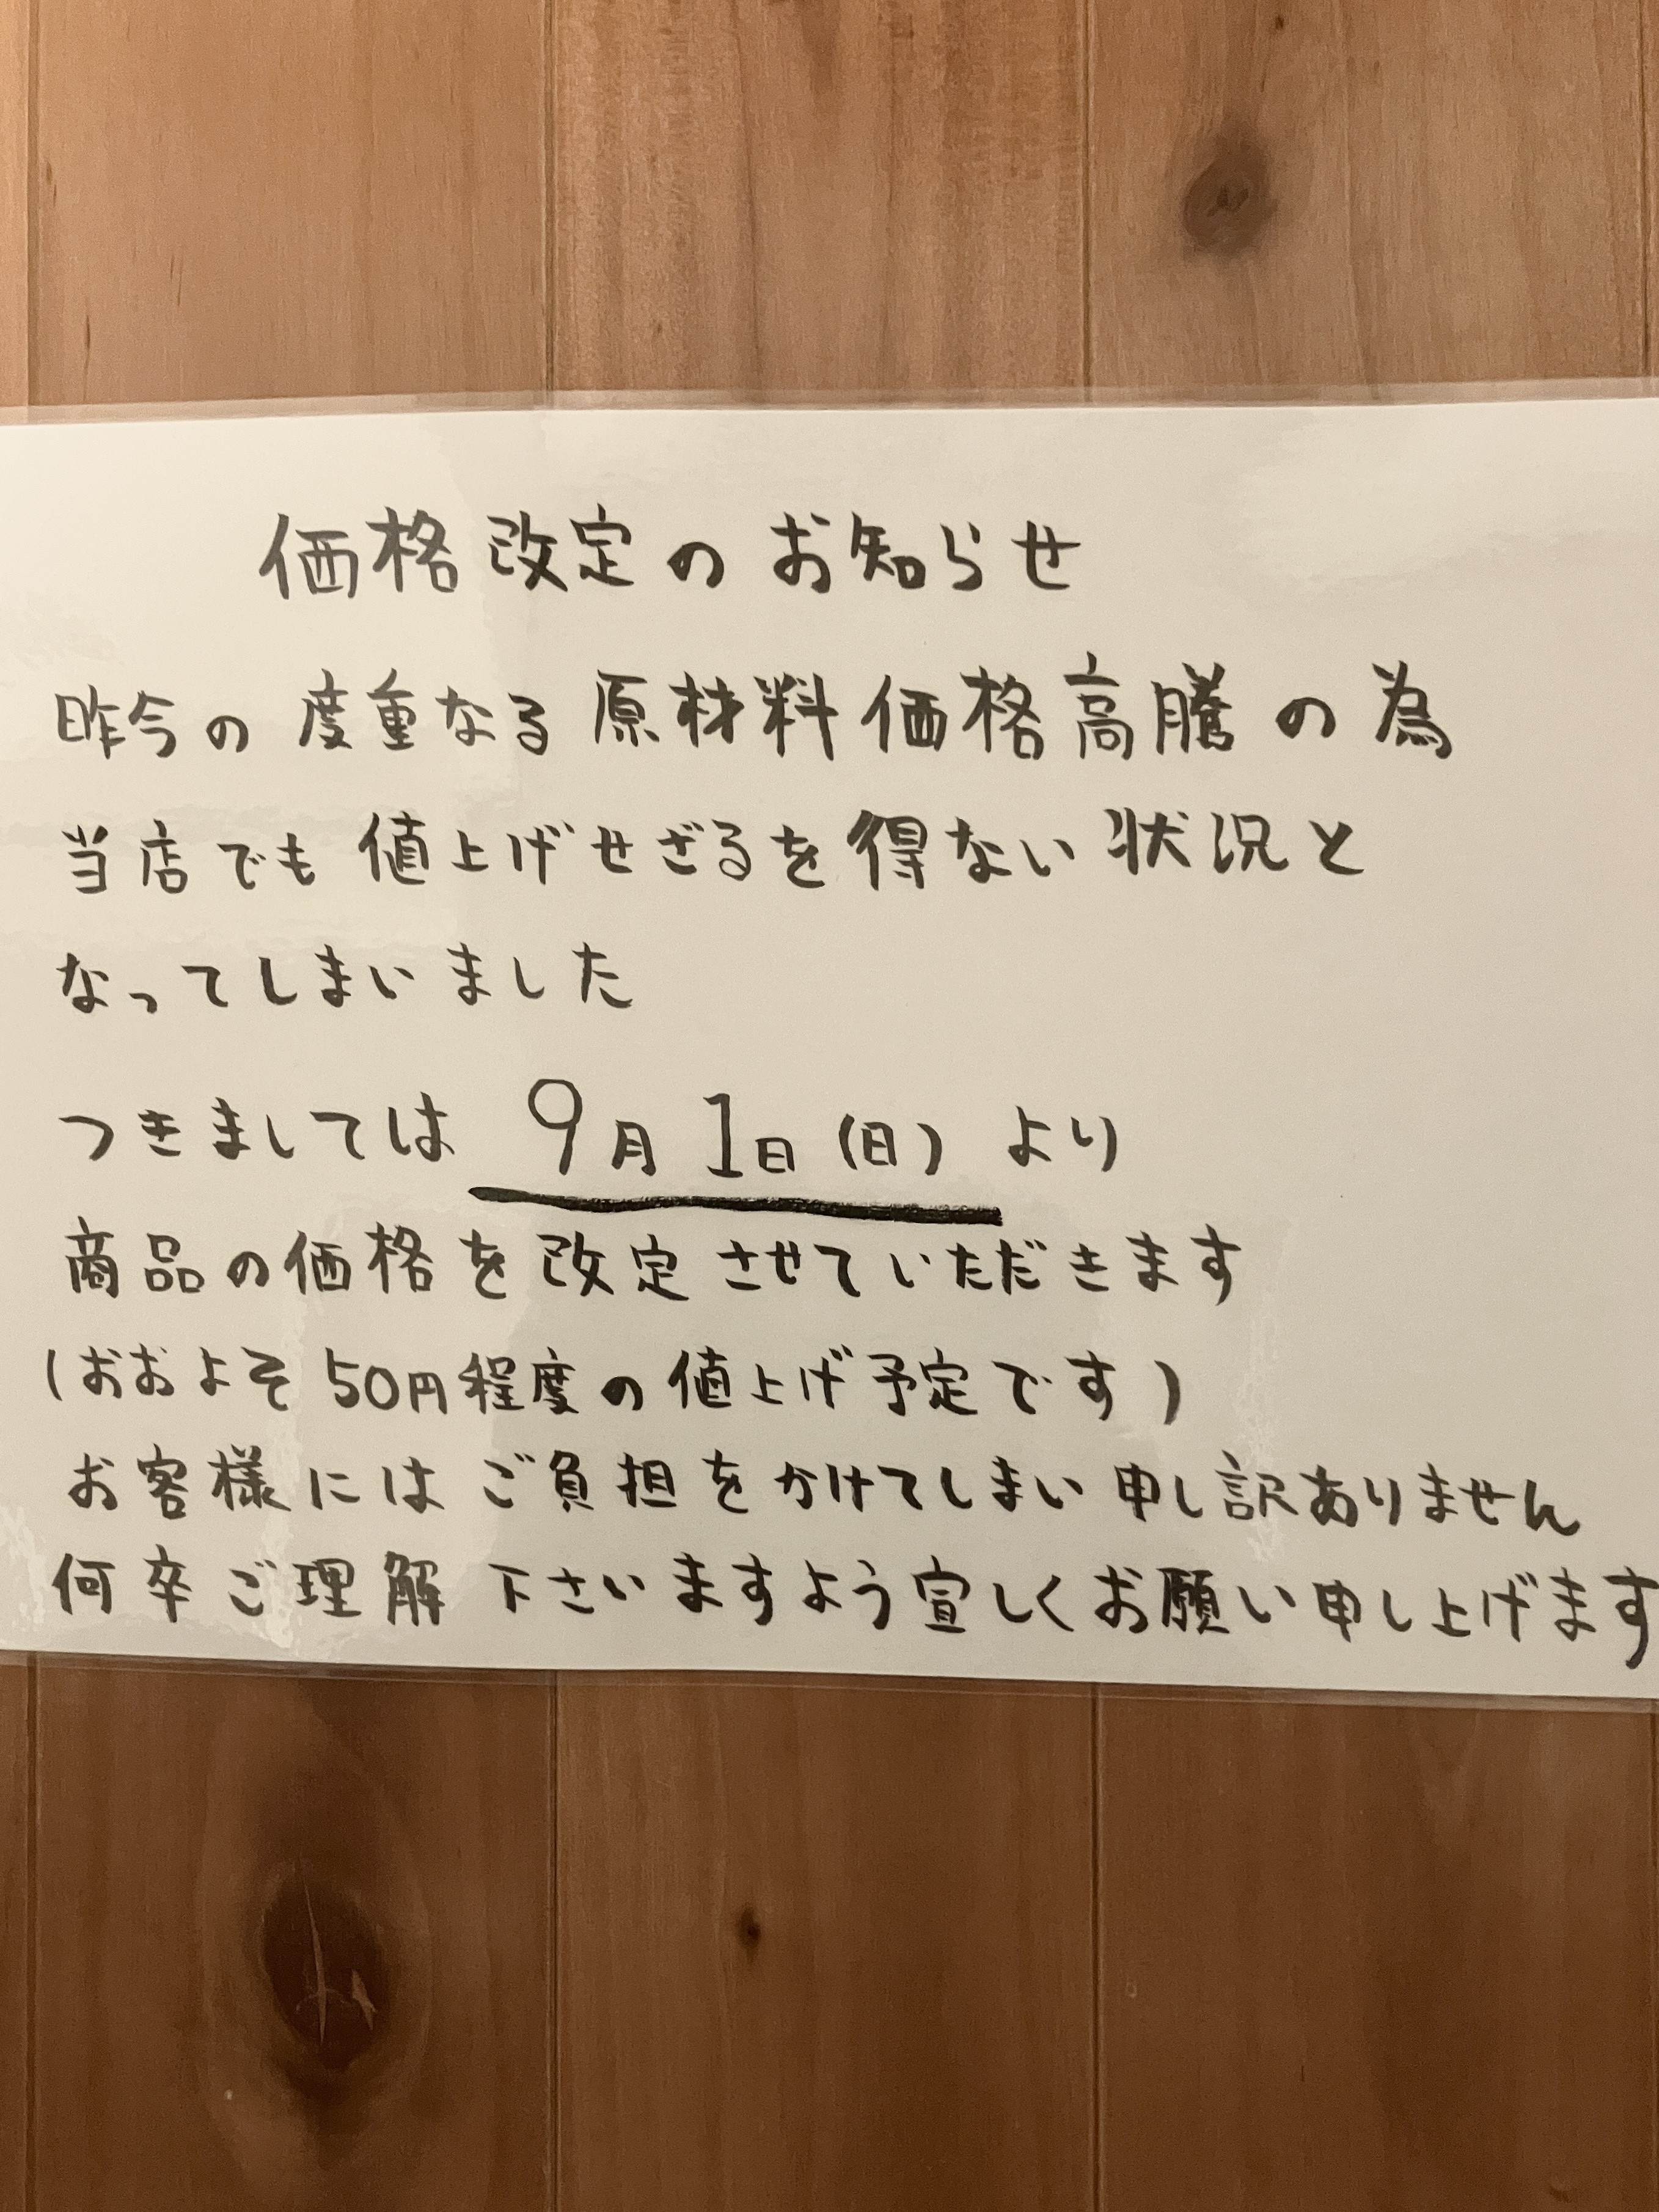 価格改定のお知らせ
昨今の度重なる原材料価格高騰の為
当店でも値上げせざるを得ない状況と
なってしまいました
つきましては 9月1日(日)より
商品の価格を改定させていただきます
(おおよそ50円程度の値上げ予定です)
お客様にはご負担をかけてしまい申し訳ありません
何卒ご理解下さいますよう宜しくお願い申し上げます